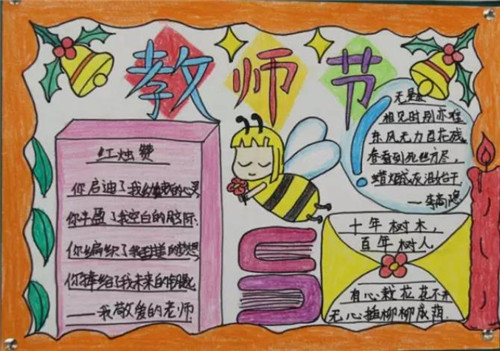 教师节
红烛赞
你启迪了我幼稚的心灵
你丰盈了我空白的脑际
你编织了我的梦想
你捧给了我未来的
——我敬爱的老师
无题
相见时别亦难
东风无力百花残
春蚕到死丝方尽,
蜡炬成灰泪始干
——李商隐
十年树木,
百年树人
有心栽花花不开
无心插柳柳成荫。